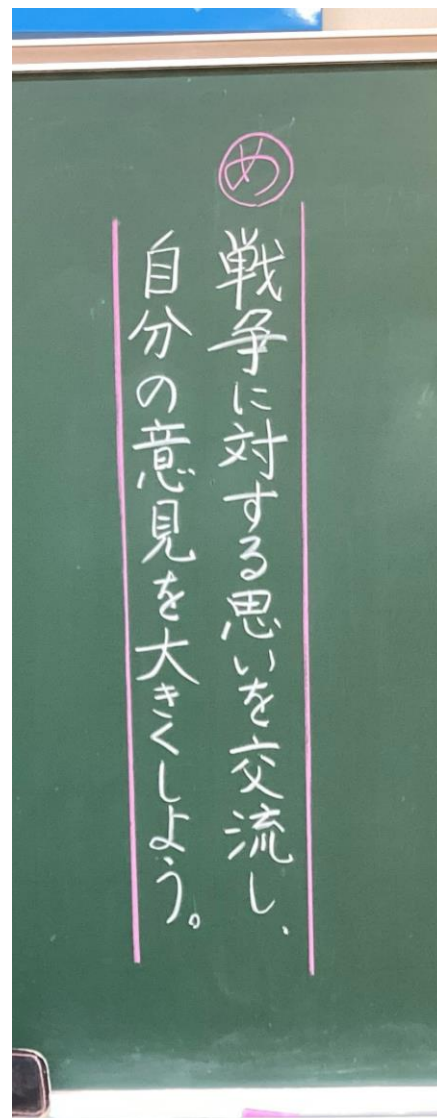 め
戦争に対する思いを交流し、
自分の意見を大きくしよう。